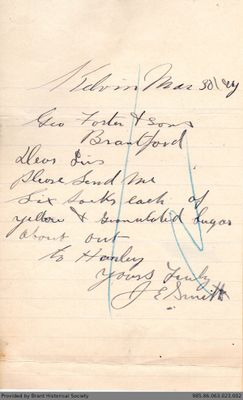 Kelvin Mar 30/99
Geo Foster & Sons
Brantford
Dear Sir
Please Send Me
Six Sacks each of
yellow & Granulated Sugar
about out
to Hanley
Yours Truly
J E Smith
Provided by Brant Historical Society
985.86.063.023.092